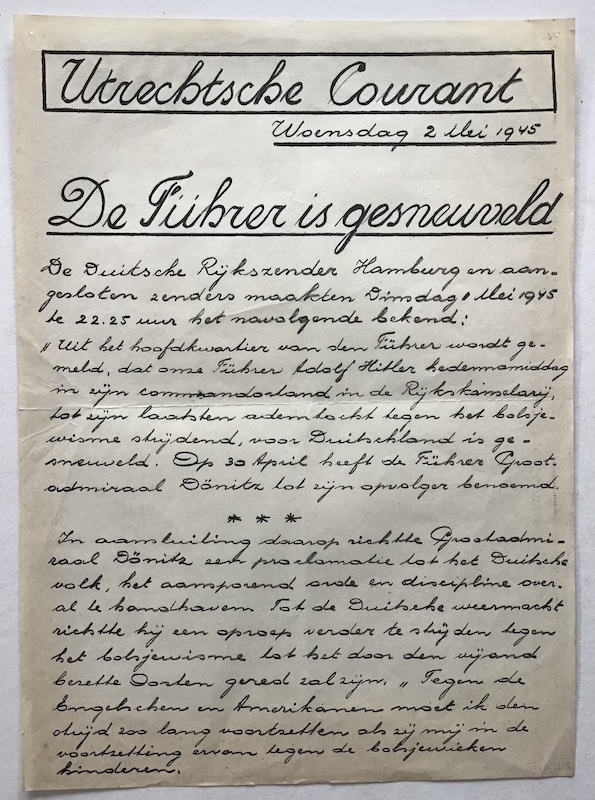 Utrechtsche Courant
Woensdag 2 Mei 1945
De Führer is gesneuveld
De Duitsche Rijkszender Hamburg en aan-
gesloten zenders maakten Dinsdag 1 Mei 1945
te 22.25 uur het navolgende bekend:
„Uit het hoofdkwartier van den Führer wordt ge-
meld, dat onze Führer Adolf Hitler hedennamiddag
in zijn commandostand in de Rijkskanselarij,
tot zijn laatsten ademtocht tegen het bolsje-
wisme strijdend, voor Duitschland is ge-
sneuveld. Op 30 April heeft de Führer Groot-
admiraal Dönitz tot zijn opvolger benoemd.
* * *
In aansluiting daarop richtte Grootadmi-
raal Dönitz een proclamatie tot het Duitsche
volk, het aansporend orde en discipline over-
al te handhaven. Tot de Duitsche weermacht
richtte hij een oproep verder te strijden tegen
het bolsjewisme tot het door den vijand
bezette Oosten gered zal zijn. „Tegen de
Engelschen en Amerikanen moet ik den
strijd zoo lang voortzetten als zij mij in de
voortzetting ervan tegen de bolsjewieken
hinderen.